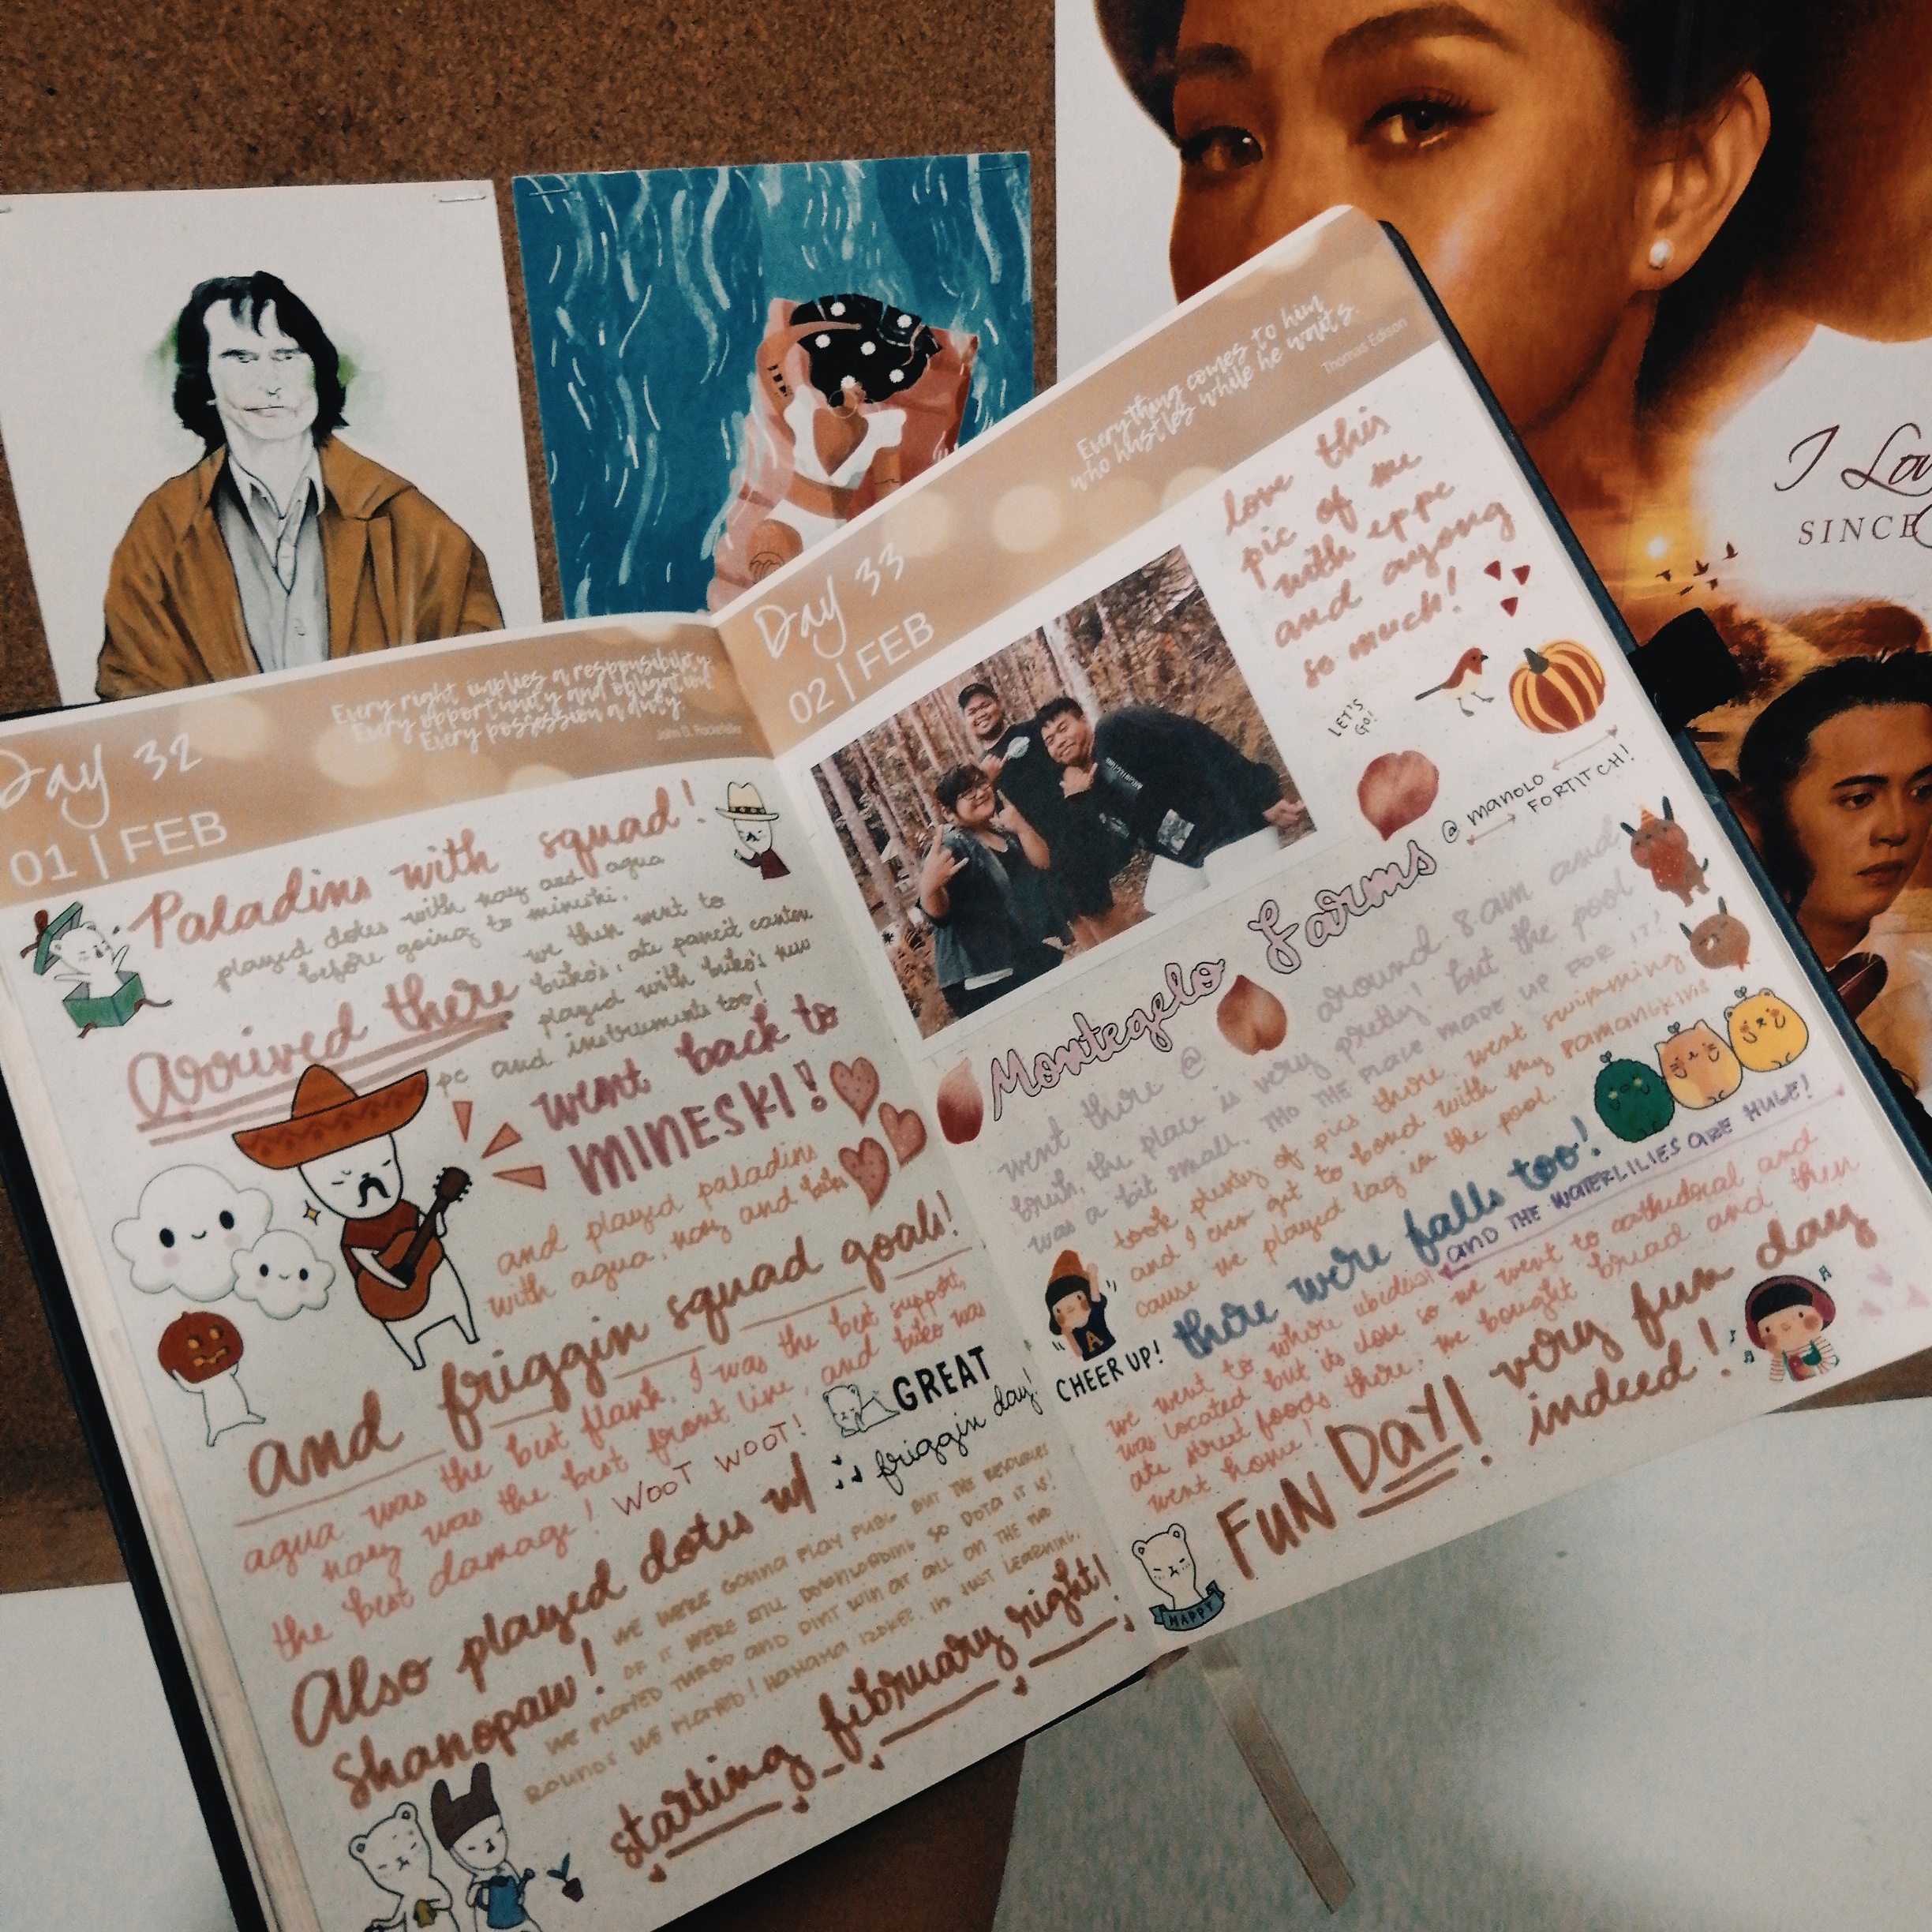 Day 32
01 | FEB
Every right implies a responsibility.
Every opportunity and obligation.
Every possession a duty.
John D. Rockefeller
Paladins with squad!
played dotes with kay and agua
before going to mineski.
Arrived there
we then went to
biko's, ate pancit canton
played with biko's new
pc and instruments too!
went back to
MINESKI!
and played paladins
with agua, kay and biko
and friggin squad goals!
agua was the best flank, I was the best support,
kay was the best front line, and biko was
the best damage! WOOT WOOT!
GREAT
friggin day!
Also played dotes w/
shanopaw!
WE WERE GONNA PLAY PUBG BUT THE RESOURCES
OF IT WERE STILL DOWNLOADING SO DOTA IT IS!
WE PLAYED THREO AND DINT WIN AT ALL ON THE TWO
ROUNDS WE PLAYED! HAHAHA IZOKEE, IM JUST LEARNING.
starting february right!
Day 33
02 | FEB
Everything comes to him
who hustles while he waits.
Thomas Edison
love this
pic of me
with eppe
and ayong
so much!
LET'S
GO!
@ MANOLO
FORTITCH!
Montegelo Farms
went there @ around 8am and
bruh, the place is very pretty! but the pool
was a bit small. THO THE PLACE MADE UP FOR IT!
took plenty of pics there, went swimming
and I even got to bond with my PAMANGKINS
cause we played tag in the pool.
there were falls too!
AND THE WATERLILIES ARE HUGE!
CHEER UP!
we went to where
was located but its close so we went to cathedral and
ate street foods there, we bought bread and then
went home!
FUN DAY! very fun day
indeed!
HAPPY
A
I Lov
SINCE